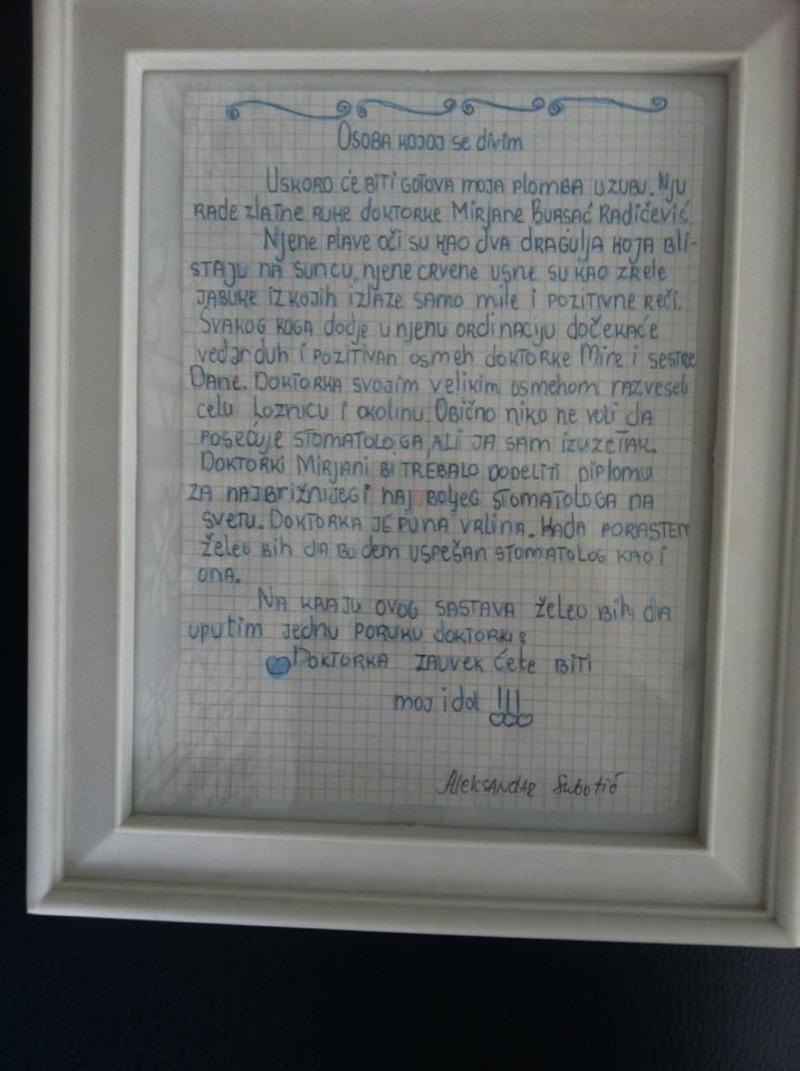 Osoba kojoj se divim
Uskoro će biti gotova moja plomba u zubu. Nju
rade zlatne ruke doktorke Mirjane Bursać Radičević.
Njene plave oči su kao dva dragulja koja bli-
staju na suncu, njene crvene usne su kao zrele
jabuke iz kojih izlaze samo mile i pozitivne reči.
Svakog koga dodje u njenu ordinaciju dočekaće
vedar duh i pozitivan osmeh doktorke Mire i sestre
Dane. Doktorka svojim velikim osmehom razveseli
celu Loznicu i okolinu. Obično niko ne voli da
posećuje stomatologa, ali ja sam izuzetak.
Doktorki Mirjani bi trebalo dodeliti diplomu
za najbrižnijeg i najboljeg stomatologa na
svetu. Doktorka je puna vrlina. Kada porastem
želeo bih da budem uspešan stomatolog kao i
ona.
Na kraju ovog sastava želeo bih da
uputim jednu poruku doktorki:
Doktorka zauvek ćete biti
moj idol !!!
Aleksandar Subotić